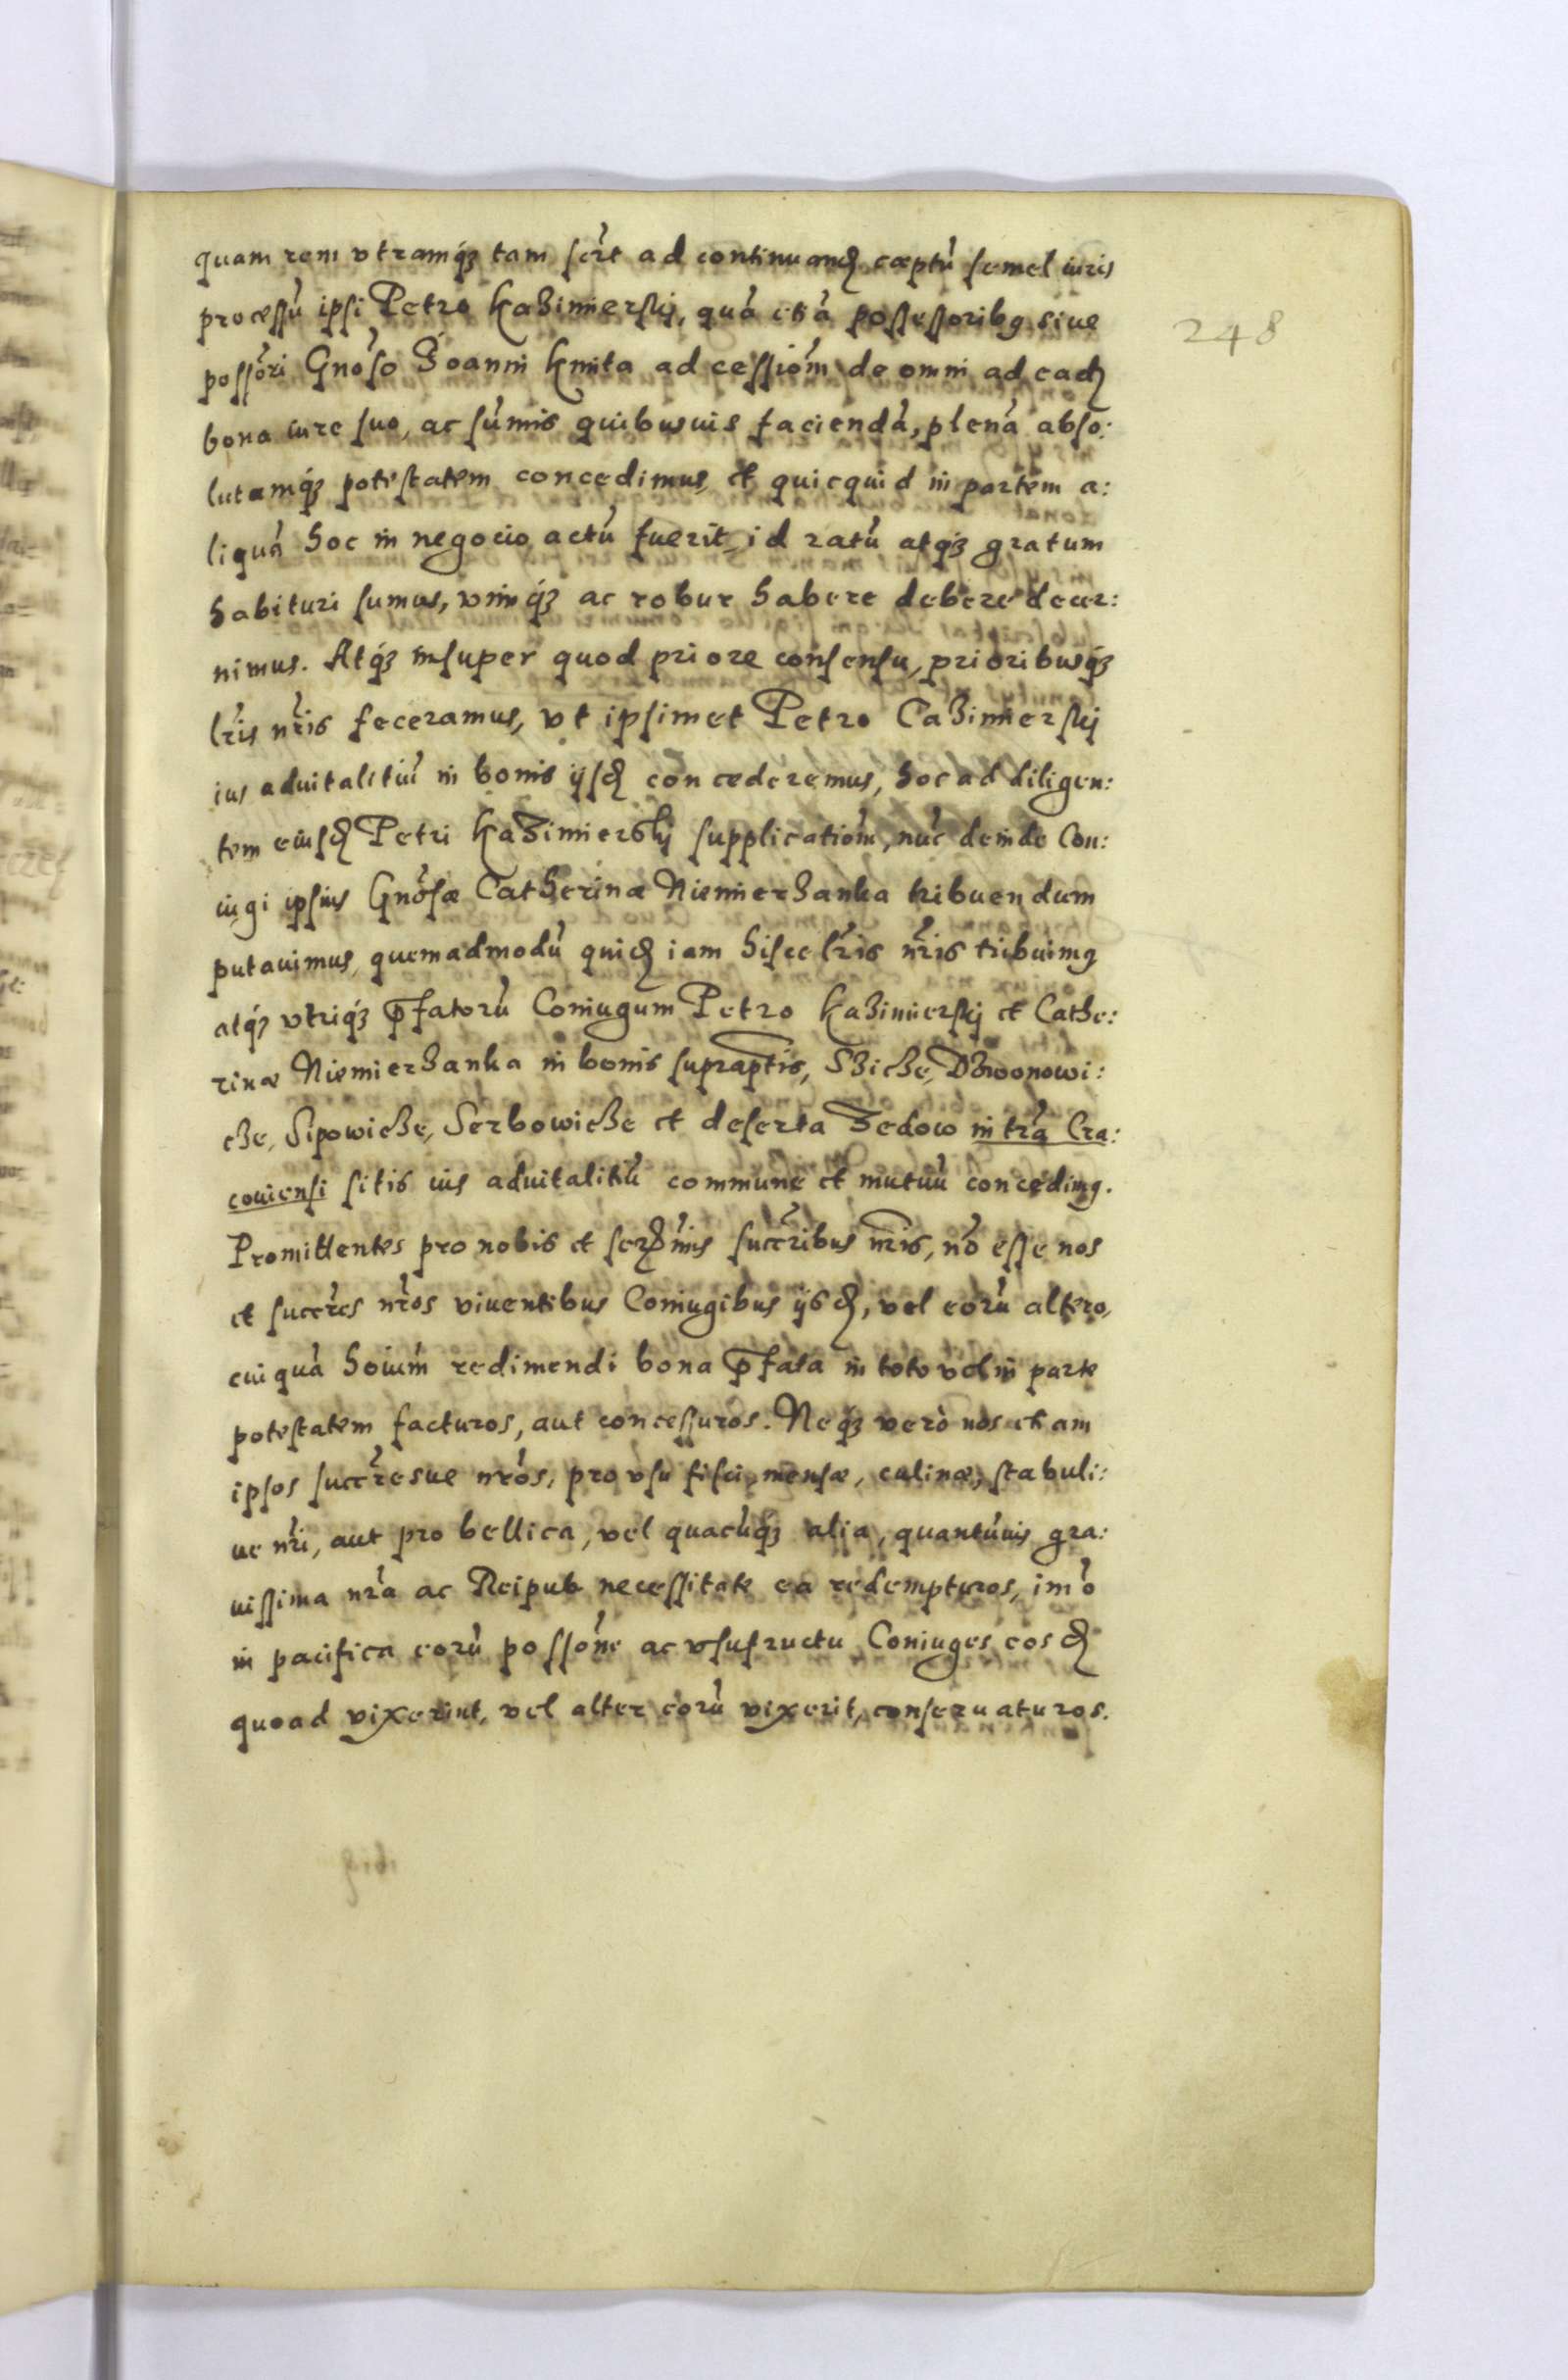 quam rem vtramq́ꝫ tam scr̃t ad continuanḍ cæptũ semel iuris
processũ ipsi Petro Kaʒimierskij, quã etiã possessoribꝯ siue
possõri Gnõso Joanni Kmita ad cessiõm de omni ad eadꝫ
bona iure suo, ac sũmis quibusuis faciendã, plenã abso:
lutamq́ꝫ potestatem concedimus, et quicquid in partem a:
liquã hoc in negocio actũ fuerit, id ratũ atq́ꝫ gratum
habituri sumus, vimq́ꝫ ac robur habere debere decer:
nimus. Atq́ꝫ insuper quod priore consensu, prioribusq́ꝫ
lr̃is nr̃is feceramus, vt ipsimet Petro Caʒimierskij
ius aduitalitiũ in bonis ijsḍ concederemus, hoc ad diligen:
tem eiusḍ Petri Kaʒimierskij supplicatiõm, nũc deinde Con:
iugi ipsius Gnõsæ Catherinæ Niemierʒanka tribuendum
putauimus, quemadmodũ quiḍ iam hisce lr̃is nr̃is tribuimꝯ
atq́ꝫ vtriq́ꝫ p̃fatorũ Coniugum Petro Kaʒimierskij et Cathe:
rinæ Niemierʒanka in bonis supraptis, Sʒicʒe, Dʒwonowi:
cʒe, Sipowicʒe, Serbowicʒe et deserta Zedow in tr̃a Cra:
couiensi sitis ius aduitalitiũ commune et mutuũ concedimꝯ.
Promittentes pro nobis et serꝫmis succr̃ibus nr̃is, nõ esse nos
et succr̃es nr̃os viuentibus Coniugibus ijsḍ, vel eorũ altero,
cuiquã hoium̃ redimendi bona p̃fata in toto vel in parte
potestatem facturos, aut concessuros. Neq́ꝫ verò nos etiam
ipsos succr̃esue nr̃os, pro vsu fisci, mensæ, culinæ, stabuli:
ue nr̃i, aut pro bellica, vel quacũq́ꝫ alia, quantũuis gra:
uissima nr̃a ac Reipub necessitate ea redempturos, imõ
in pacifica eorũ possõne ac vsufructu Coniuges eosḍ
quoad vixerint, vel alter eorũ vixerit, conseruaturos.
248